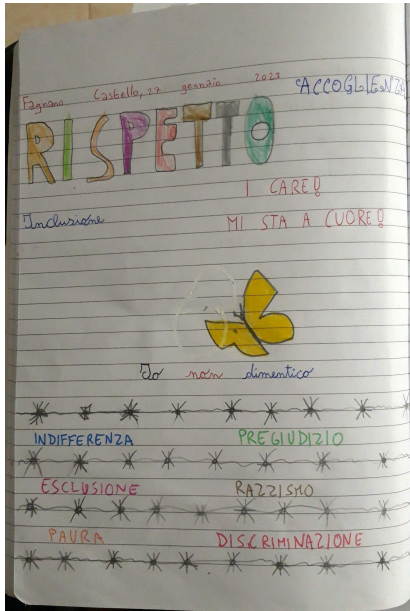 Fagnano Castello, 27 gennaio 2023
ACCOGLIENZA
RISPETTO
I CARE!
Inclusione
MI STA A CUORE!
Io non dimentico
INDIFFERENZA
PREGIUDIZIO
ESCLUSIONE
RAZZISMO
PAURA
DISCRIMINAZIONE